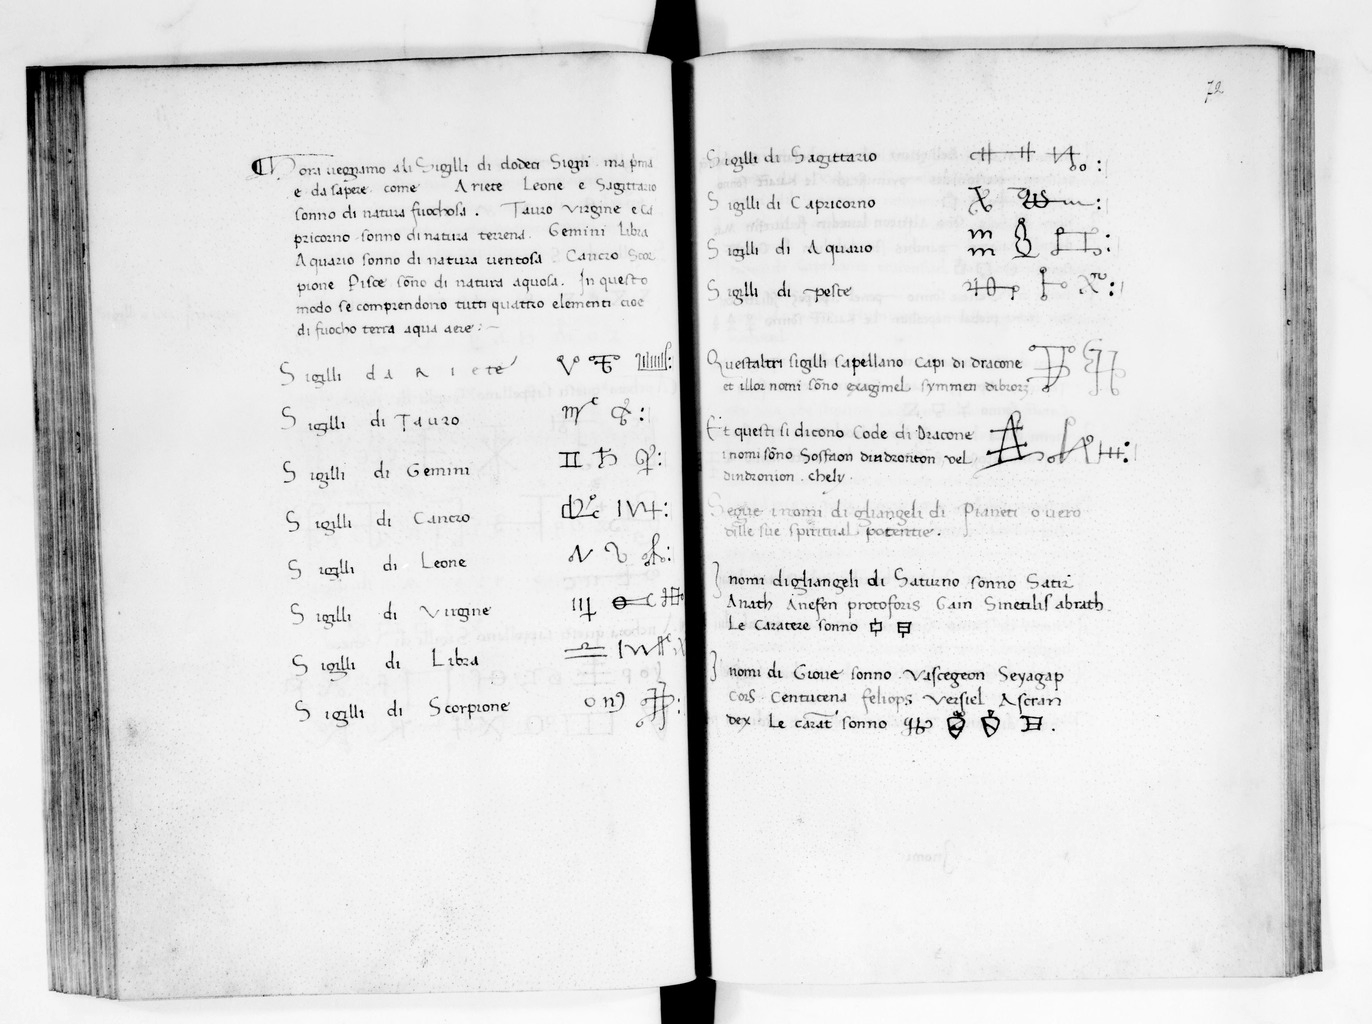 Hora uegnamo ali Sigilli di dodeci Signi. ma pma
e da sapere come Ariete Leone e Sagittario
sonno di natura fuochosa. Tauro Virgine e Ca
pricorno sonno di natura terrena. Gemini Libra
Aquario sonno di natura uentosa Cancro Scor
pione Pisce sono di natura aquosa. In questo
modo se comprendono tutti quattro elementi cioe
di fuocho terra aqua aere:
Sigilli da Ariete
Sigilli di Tauro
Sigilli di Gemini
Sigilli di Cancro
Sigilli di Leone
Sigilli di Virgine
Sigilli di Libra
Sigilli di Scorpione
72
Sigilli di Sagittario
Sigilli di Capricorno
Sigilli di Aquario
Sigilli di peste
Questaltri sigilli sapellano Capi di Dracone
et illor nomi sono exagimel symmen
Et questi si dicono Code di Dracone
i nomi sono Sosfraon dindroriton vel
dindronion. chely.
Segue i nomi di gliangeli di Pianeti o uero
delle sue spiritual potentie.
I nomi di gliangeli di Saturno sonno Satir
Anath Anefen protoforis Gain Sinetilis abrath.
Le Caratere sonno
I nomi di Gioue sonno. Vascegeon Seyagap
Cors. Centucena feliops Versiel Ascran
dex Le carat sonno